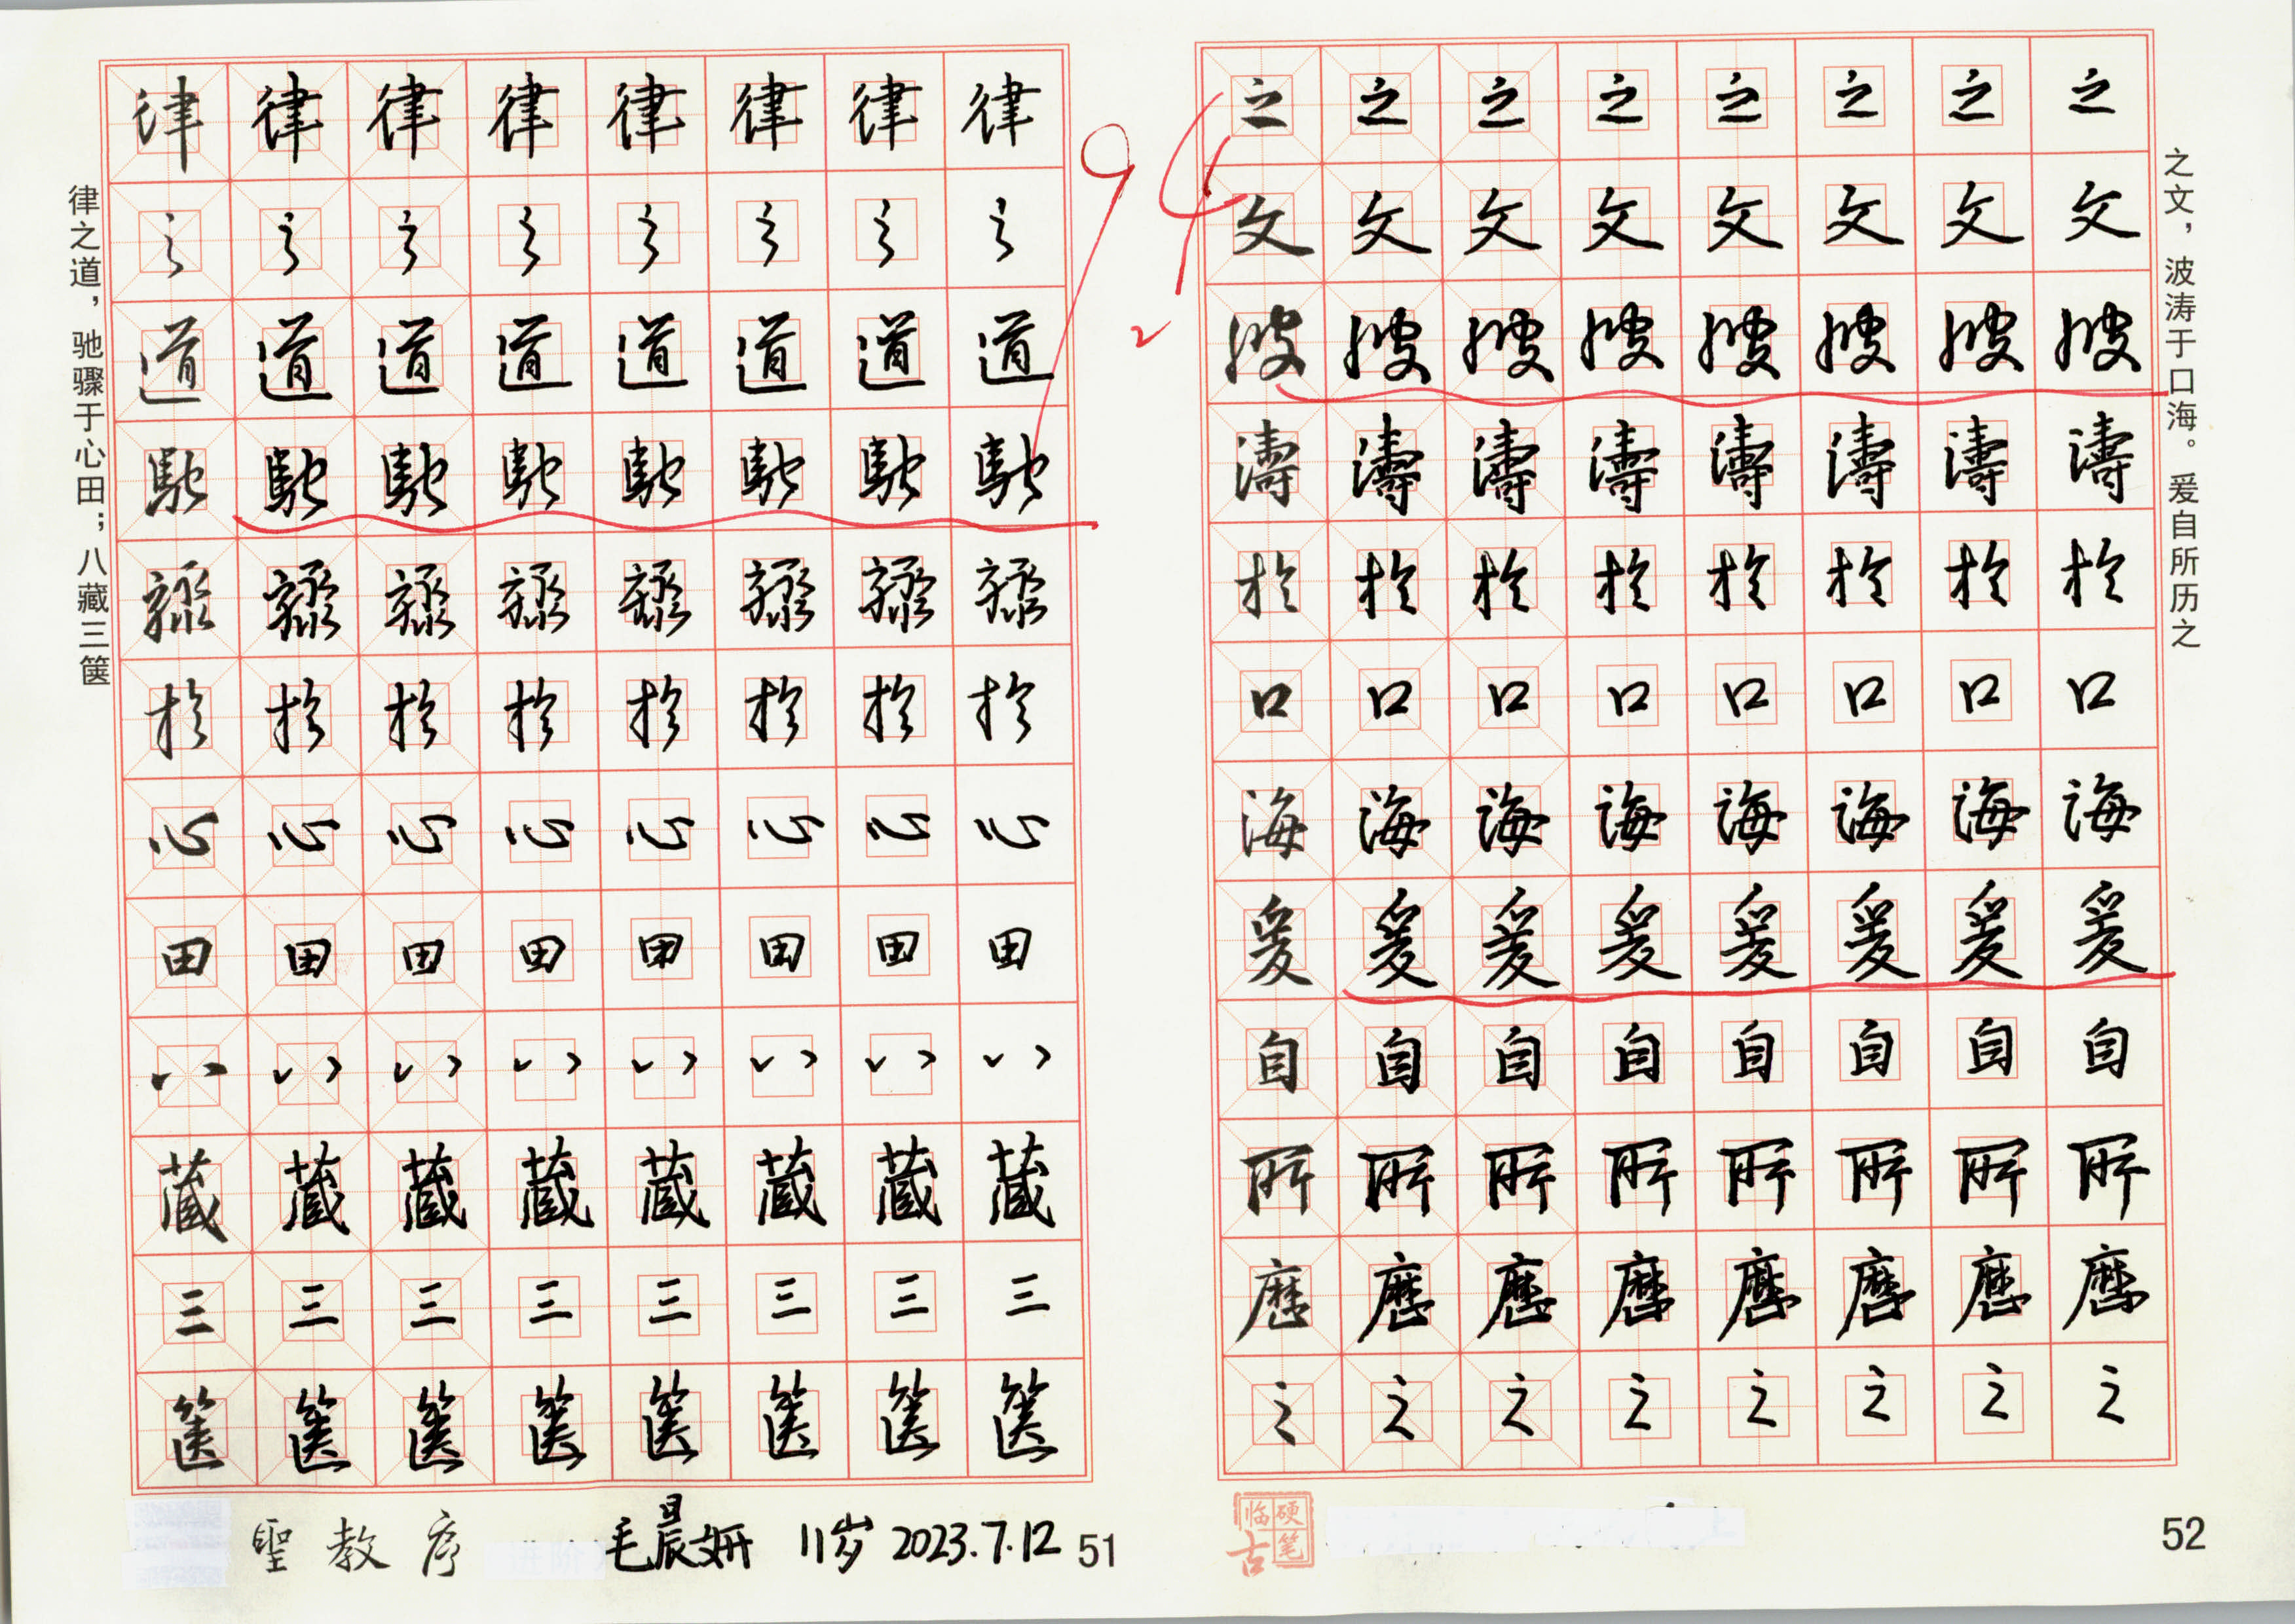 律之道，驰骤于心田；八藏三箧
律 律 律 律 律 律 律 律
之 之 之 之 之 之 之 之
道 道 道 道 道 道 道 道
馳 馳 馳 馳 馳 馳 馳 馳
驟 驟 驟 驟 驟 驟 驟 驟
於 於 於 於 於 於 於 於
心 心 心 心 心 心 心 心
田 田 田 田 田 田 田 田
八 八 八 八 八 八 八 八
蔵 蔵 蔵 蔵 蔵 蔵 蔵 蔵
三 三 三 三 三 三 三 三
篋 篋 篋 篋 篋 篋 篋 篋
聖教序
毛晨妍 11岁 2023.7.12
51
94
之 之 之 之 之 之 之 之
文 文 文 文 文 文 文 文
波 波 波 波 波 波 波 波
濤 濤 濤 濤 濤 濤 濤 濤
於 於 於 於 於 於 於 於
口 口 口 口 口 口 口 口
海 海 海 海 海 海 海 海
爰 爰 爰 爰 爰 爰 爰 爰
自 自 自 自 自 自 自 自
所 所 所 所 所 所 所 所
歷 歷 歷 歷 歷 歷 歷 歷
之 之 之 之 之 之 之 之
之文，波涛于口海。爰自所历之
硬笔临古
52